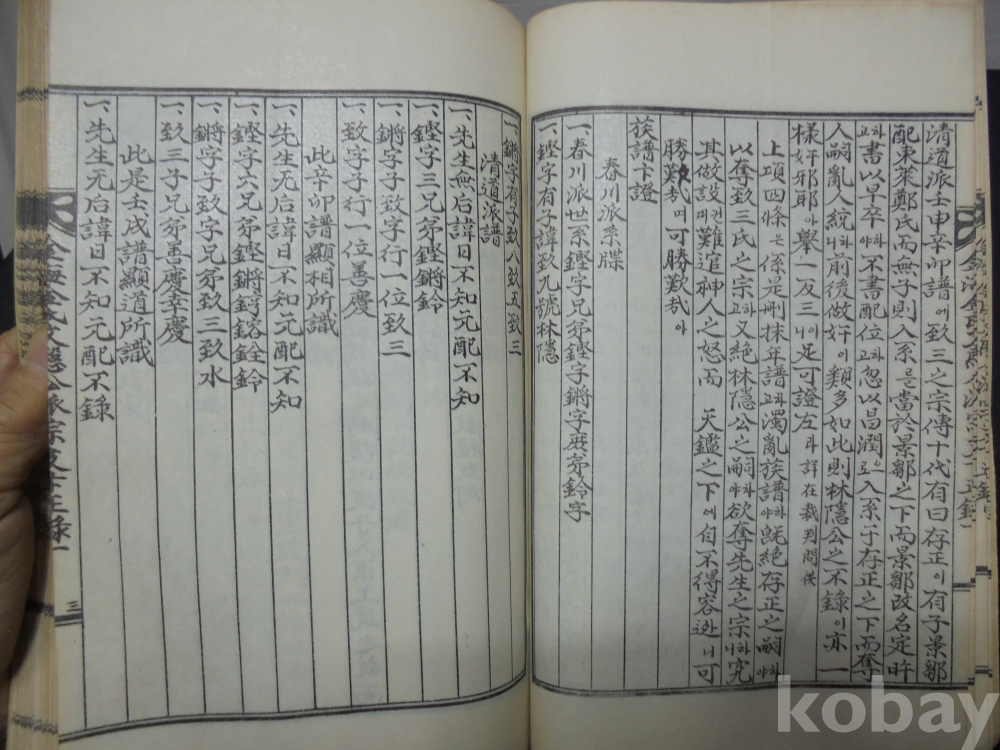 清道派壬申辛卯譜에致三之宗傳十代有曰存正이有子景鄒
配東萊鄭氏而無子則入系를當於景鄒之下而景鄒改名定旿
고하書以早卒야하不書配位고하忽以昌潤으로入系于存正之下而奪
人嗣亂人統니하前後做奸이類多如此則林隱公之不錄이亦一
樣奸邪耶아擧一反三니이足可證左라詳在裁判問供
上項四條는係是刪抹年譜고하濁亂族譜야하旣絶存正之嗣야하
以奪致三氏之宗고하又絶林隱公之嗣야하欲奪先生之宗니하究
其做設대건難逭神人之怒而 天鑑之下에自不得容逃니可
勝歎哉며可勝歎哉아
族譜下證
春川派系牒
一、春川派世系鏗字兄弟鏗字鏘字庶弟鈴字
一、鏗字有子諱致九號林隱
一、鏘字有子致八致五致三
淸道派譜
一、先生無后諱日不知元配不知
一、鏗字三兄弟鏗鏘鈴
一、鏘字子致字行一位致三
致字子行一位善慶
此辛卯譜顯相所識
一、先生无后諱日不知元配不知
一、鏗字六兄弟鏗鏘鍔鎔銓鈴
一、鏘字子致字兄弟致三致水
一、致三子善慶幸慶
此是壬戌譜顯道所識
一、先生无后諱日不知元配不錄
三
kobay